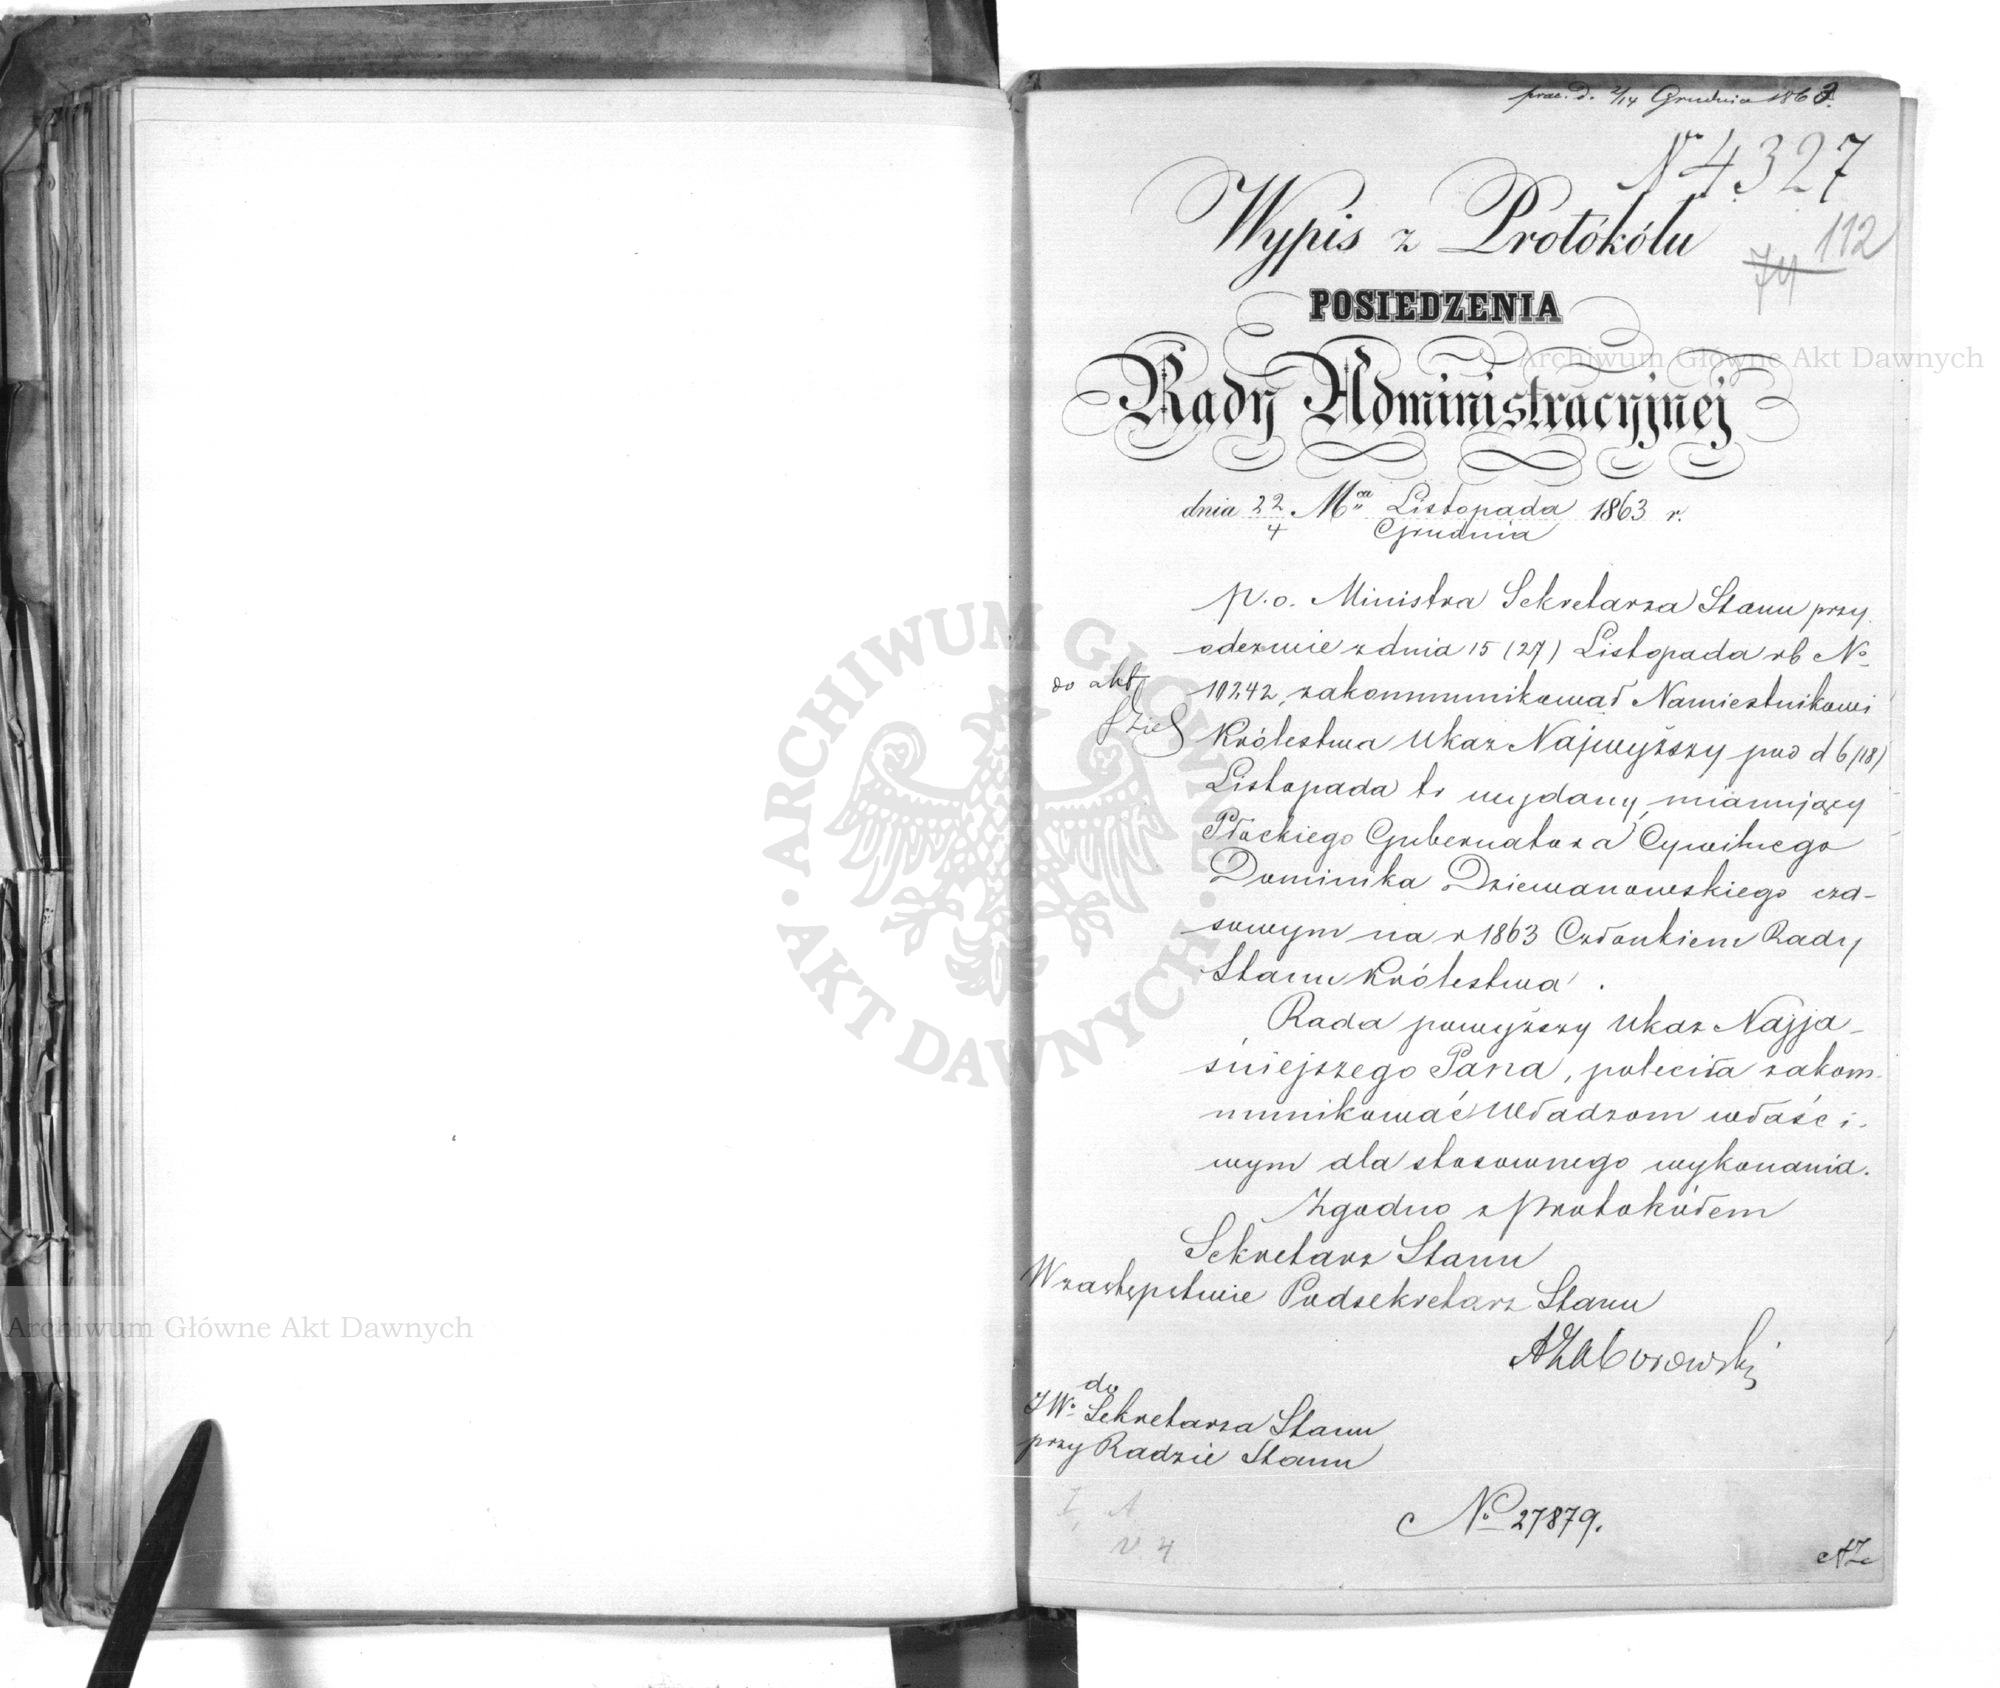 prae. d. 2/14 Grudnia 1863.
No 4327
Wypis z Protókółu
112
74
POSIEDZENIA
Rady Administracyjnej
dnia 22/4 Mca Listopada/Grudnia 1863 r.
p.o. Ministra Sekretarza Stanu przy
odezwie z dnia 15 (27) Listopada rb No
do akt
10242, zakommunikował Namiestnikowi
Królestwa Ukaz Najwyższy pod d 6 (18)
Listopada tr wydany, mianujący
Płockiego Gubernatora Cywilnego
Dominika Dziewanowskiego cza-
sowym na r 1863 Członkiem Rady
Stanu Królestwa.
Rada powyższy Ukaz Najja-
śniejszego Pana, poleciła zakom-
munikować Władzom właści-
wym dla stosownego wykonania.
Zgodno z Protokółem
Sekretarz Stanu
W zastępstwie Podsekretarz Stanu
AZaborowski
do
JWo Sekretarza Stanu
przy Radzie Stanu
No 27879.
AZ
Archiwum Główne Akt Dawnych
Archiwum Główne Akt Dawnych
ARCHIWUM GŁÓWNE · AKT DAWNYCH ·